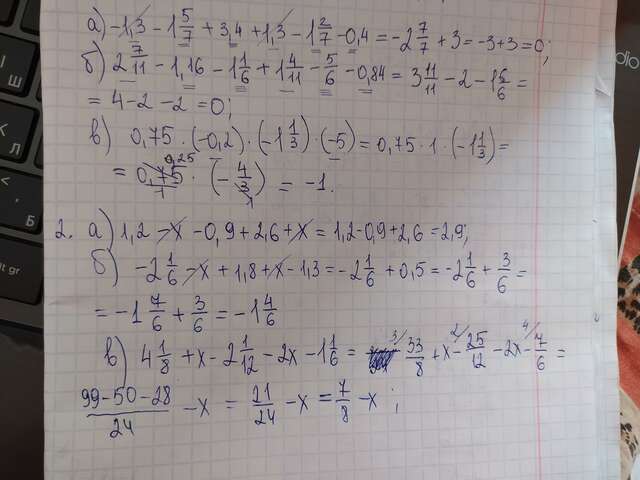 а) -1,3 - 1 5/7 + 3,4 + 1,3 - 1 2/7 - 0,4 = -2 7/7 + 3 = -3+3=0;
б) 2 7/11 - 1,16 - 1 1/6 + 1 4/11 - 5/6 - 0,84 = 3 11/11 - 2 - 1 6/6 =
= 4-2-2=0;
в) 0,75 · (-0,2) · (-1 1/3) · (-5) = 0,75 · 1 · (-1 1/3) =
= 0,75 0,25 / 1 · (- 4/3 1) = -1.
2. а) 1,2 - x - 0,9 + 2,6 + x = 1,2-0,9+2,6 = 2,9;
б) -2 1/6 - x + 1,8 + x - 1,3 = -2 1/6 + 0,5 = -2 1/6 + 3/6 =
= -1 7/6 + 3/6 = -1 4/6
в) 4 1/8 + x - 2 1/12 - 2x - 1 1/6 = 3/ 33/8 + x - 2/ 25/12 - 2x - 4/ 7/6 =
99-50-28/24 - x = 21/24 - x = 7/8 - x ;
Ш
Б
lt gr
dio